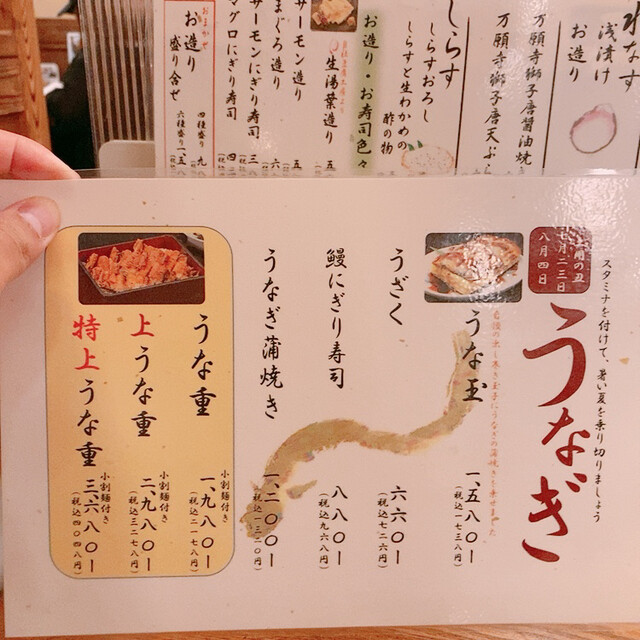 水なす
浅漬け
お造り
万願寺獅子唐醤油焼き
万願寺獅子唐天ぷら
しらす
しらすおろし
しらすと生わかめの
酢の物
お造り・お寿司色々
生湯葉造り
サーモン造り
まぐろ造り
サーモンにぎり寿司
マグロにぎり寿司
おまかせ
お造り
盛り合せ
四種盛り
六種盛り
スタミナを付けて、暑い夏を乗り切りましょう
土用の丑
七月二三日
八月四日
うなぎ
うな玉
自慢の出し巻き玉子にうなぎの蒲焼きを乗せました
一、五八〇ー
(税込一七三八円)
うざく
六六〇ー
(税込七二六円)
鰻にぎり寿司
八八〇ー
(税込九六八円)
うなぎ蒲焼き
一、二〇〇ー
(税込一三二〇円)
うな重
小割麺付き
一、九八〇ー
(税込二一七八円)
上うな重
小割麺付き
二、九八〇ー
(税込三二七八円)
特上うな重
小割麺付き
三、六八〇ー
(税込四〇四八円)